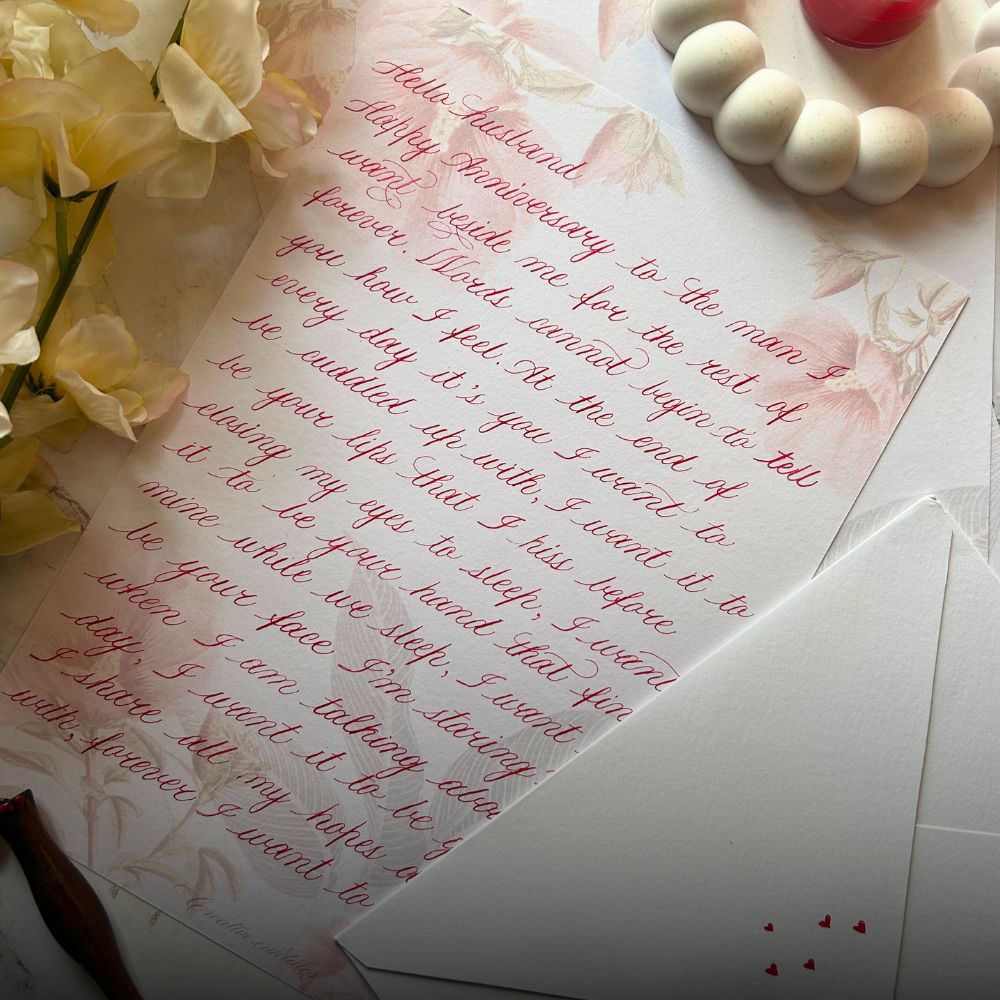 Hello husband
Happy Anniversary to the man I
want beside me for the rest of
forever. Words cannot begin to tell
you how I feel. At the end of
every day it's you I want to
be cuddled up with, I want it to
be your lips that I kiss before
closing my eyes to sleep, I want
it to be your hand that fin
mine while we sleep, I want
be your face I'm staring
when I am talking abou
day, I want it to be y
I share all my hopes a
with, forever I want to